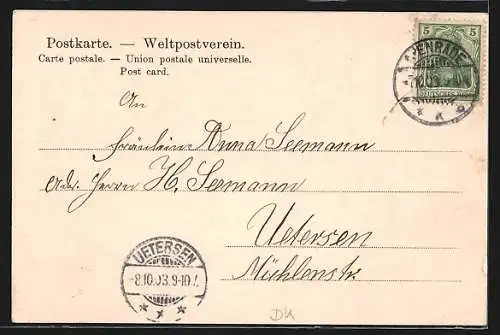 Postkarte. — Weltpostverein.
Carte postale. — Union postale universelle.
Post card.
5 5
APENRADE
An
Fräulein Anna Seemann
Adr. Herrn H. Seemann
Uetersen
Mühlenstr.
UETERSEN
-8.10.03.9-10
DK